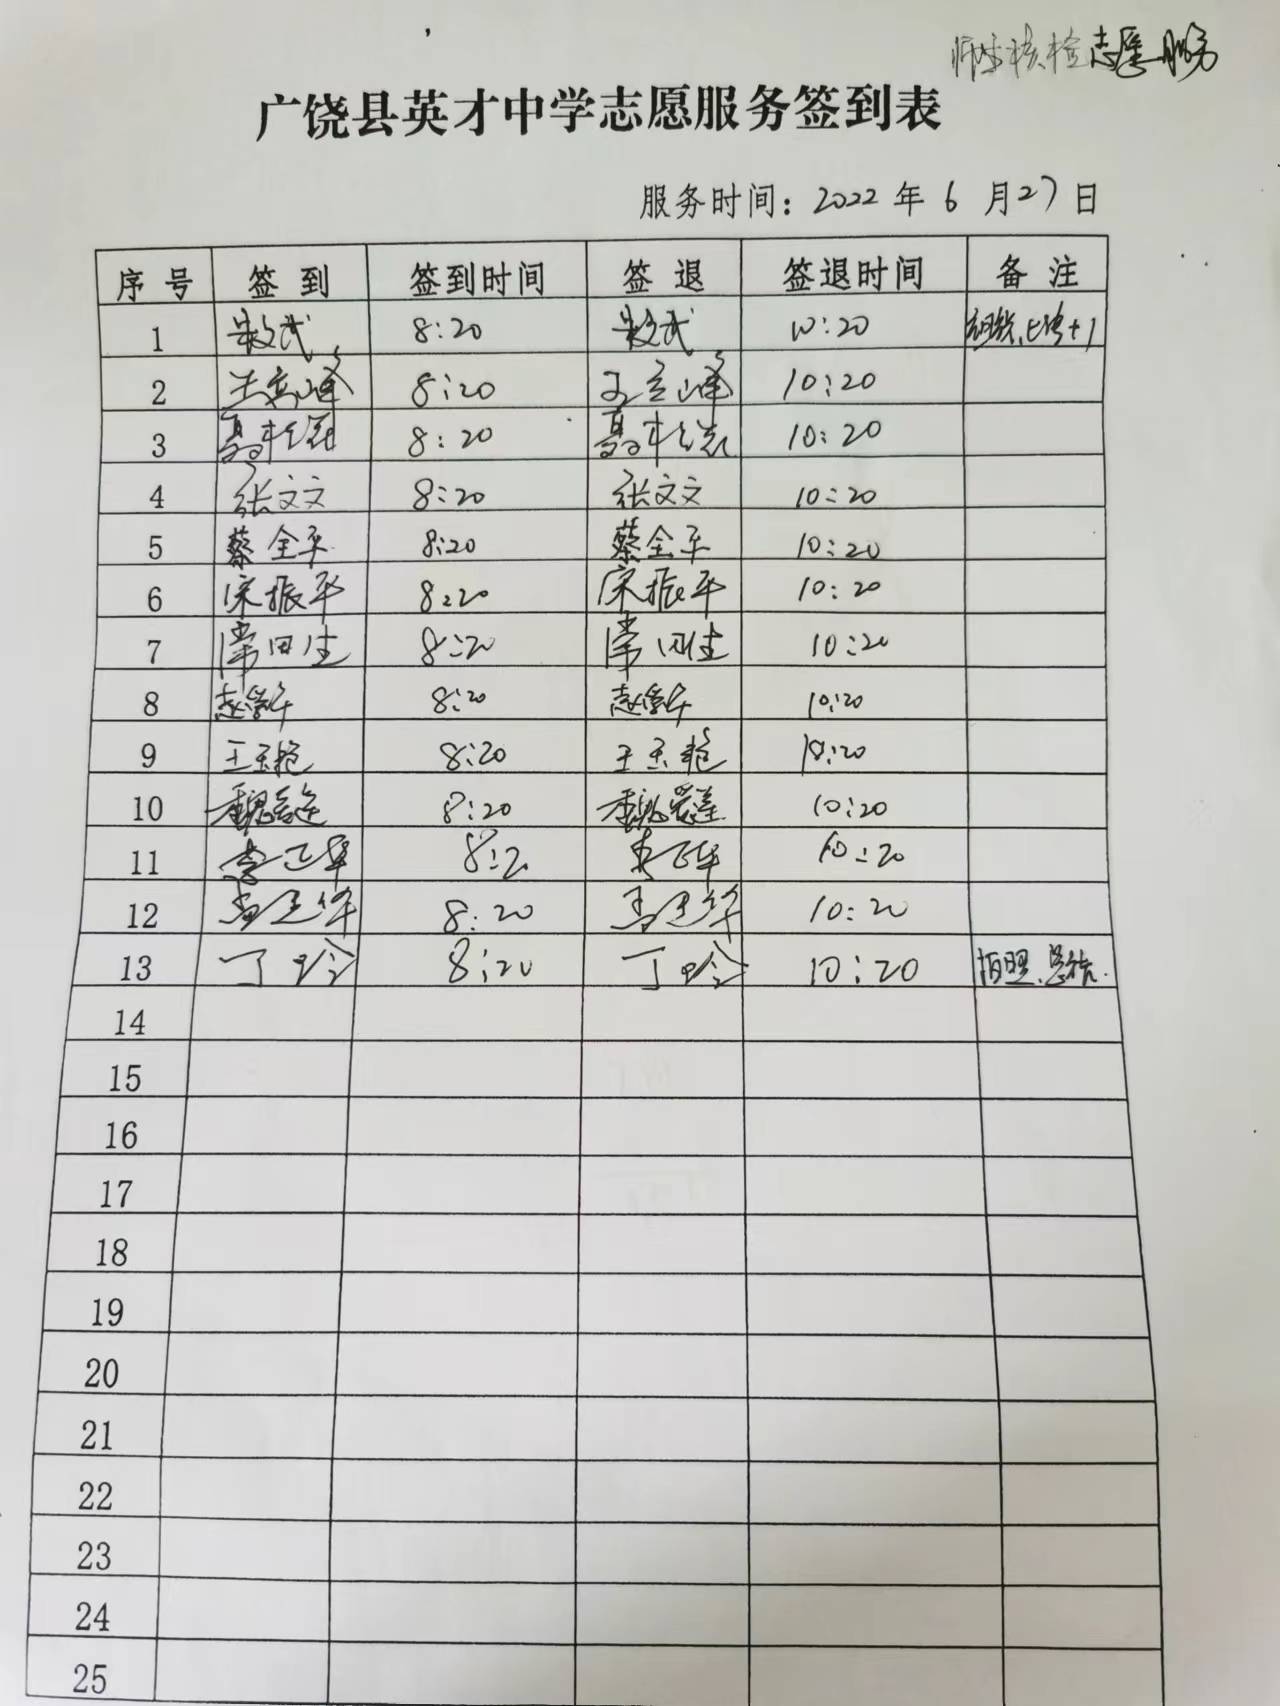 师生核检志愿服务
广饶县英才中学志愿服务签到表
服务时间：2022年6月27日
序号 签到 签到时间 签退 签退时间 备注
1 8:20 10:20 +1
2 王立峰 8:20 10:20
3 8:20 10:20
4 张文文 8:20 张文文 10:20
5 蔡全平 8:20 蔡全平 10:20
6 宋振平 8:20 宋振平 10:20
7 常田生 8:20 常田生 10:20
8 赵学华 8:20 赵学华 10:20
9 王玉艳 8:20 王玉艳 10:20
10 8:20 10:20
11 李卫华 8:20 李卫华 10:20
12 8:20 10:20
13 丁玲 8:20 丁玲 10:20 拍照、总结.
14
15
16
17
18
19
20
21
22
23
24
25